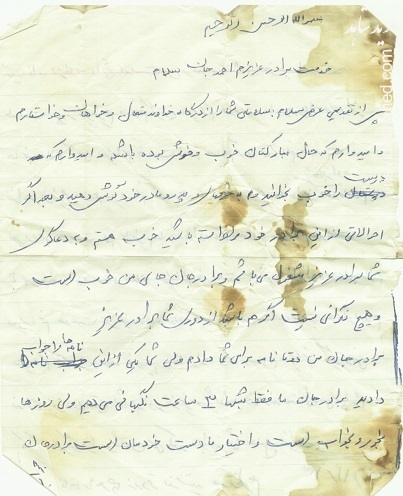 بسم الله الرحمن الرحیم
خدمت برادر عزیزم احمد جان سلام
پس از تقدیم عرض سلام سلامتی شما را از درگاه خداوند متعال خواهان و خواستارم
و امیدوارم که حال مبارکتان خوب و خوش بوده باشد و امیدوارم که
درست
را خوب بخوانید و به پدر و مادر خود گوش دهید و بعد اگر
احوالاتی از این برادر خود خواسته باشید خوب هستم و به دعاگوی
شما برادر عزیز مشغول می باشم و برادر جان جای من خوب است
و هیچ نگرانی نیست اگر هم باشد از دوری شما برادر عزیز
برادر جان من دو تا نامه برای شما دادم ولی شما یکی از این نامه ها را جواب
دادید برادر جان ما فقط شبها ۳ ساعت نگهبانی می دهیم ولی روزها
بخور و بخواب است و اختیار ما دست خودمان است برادر جان